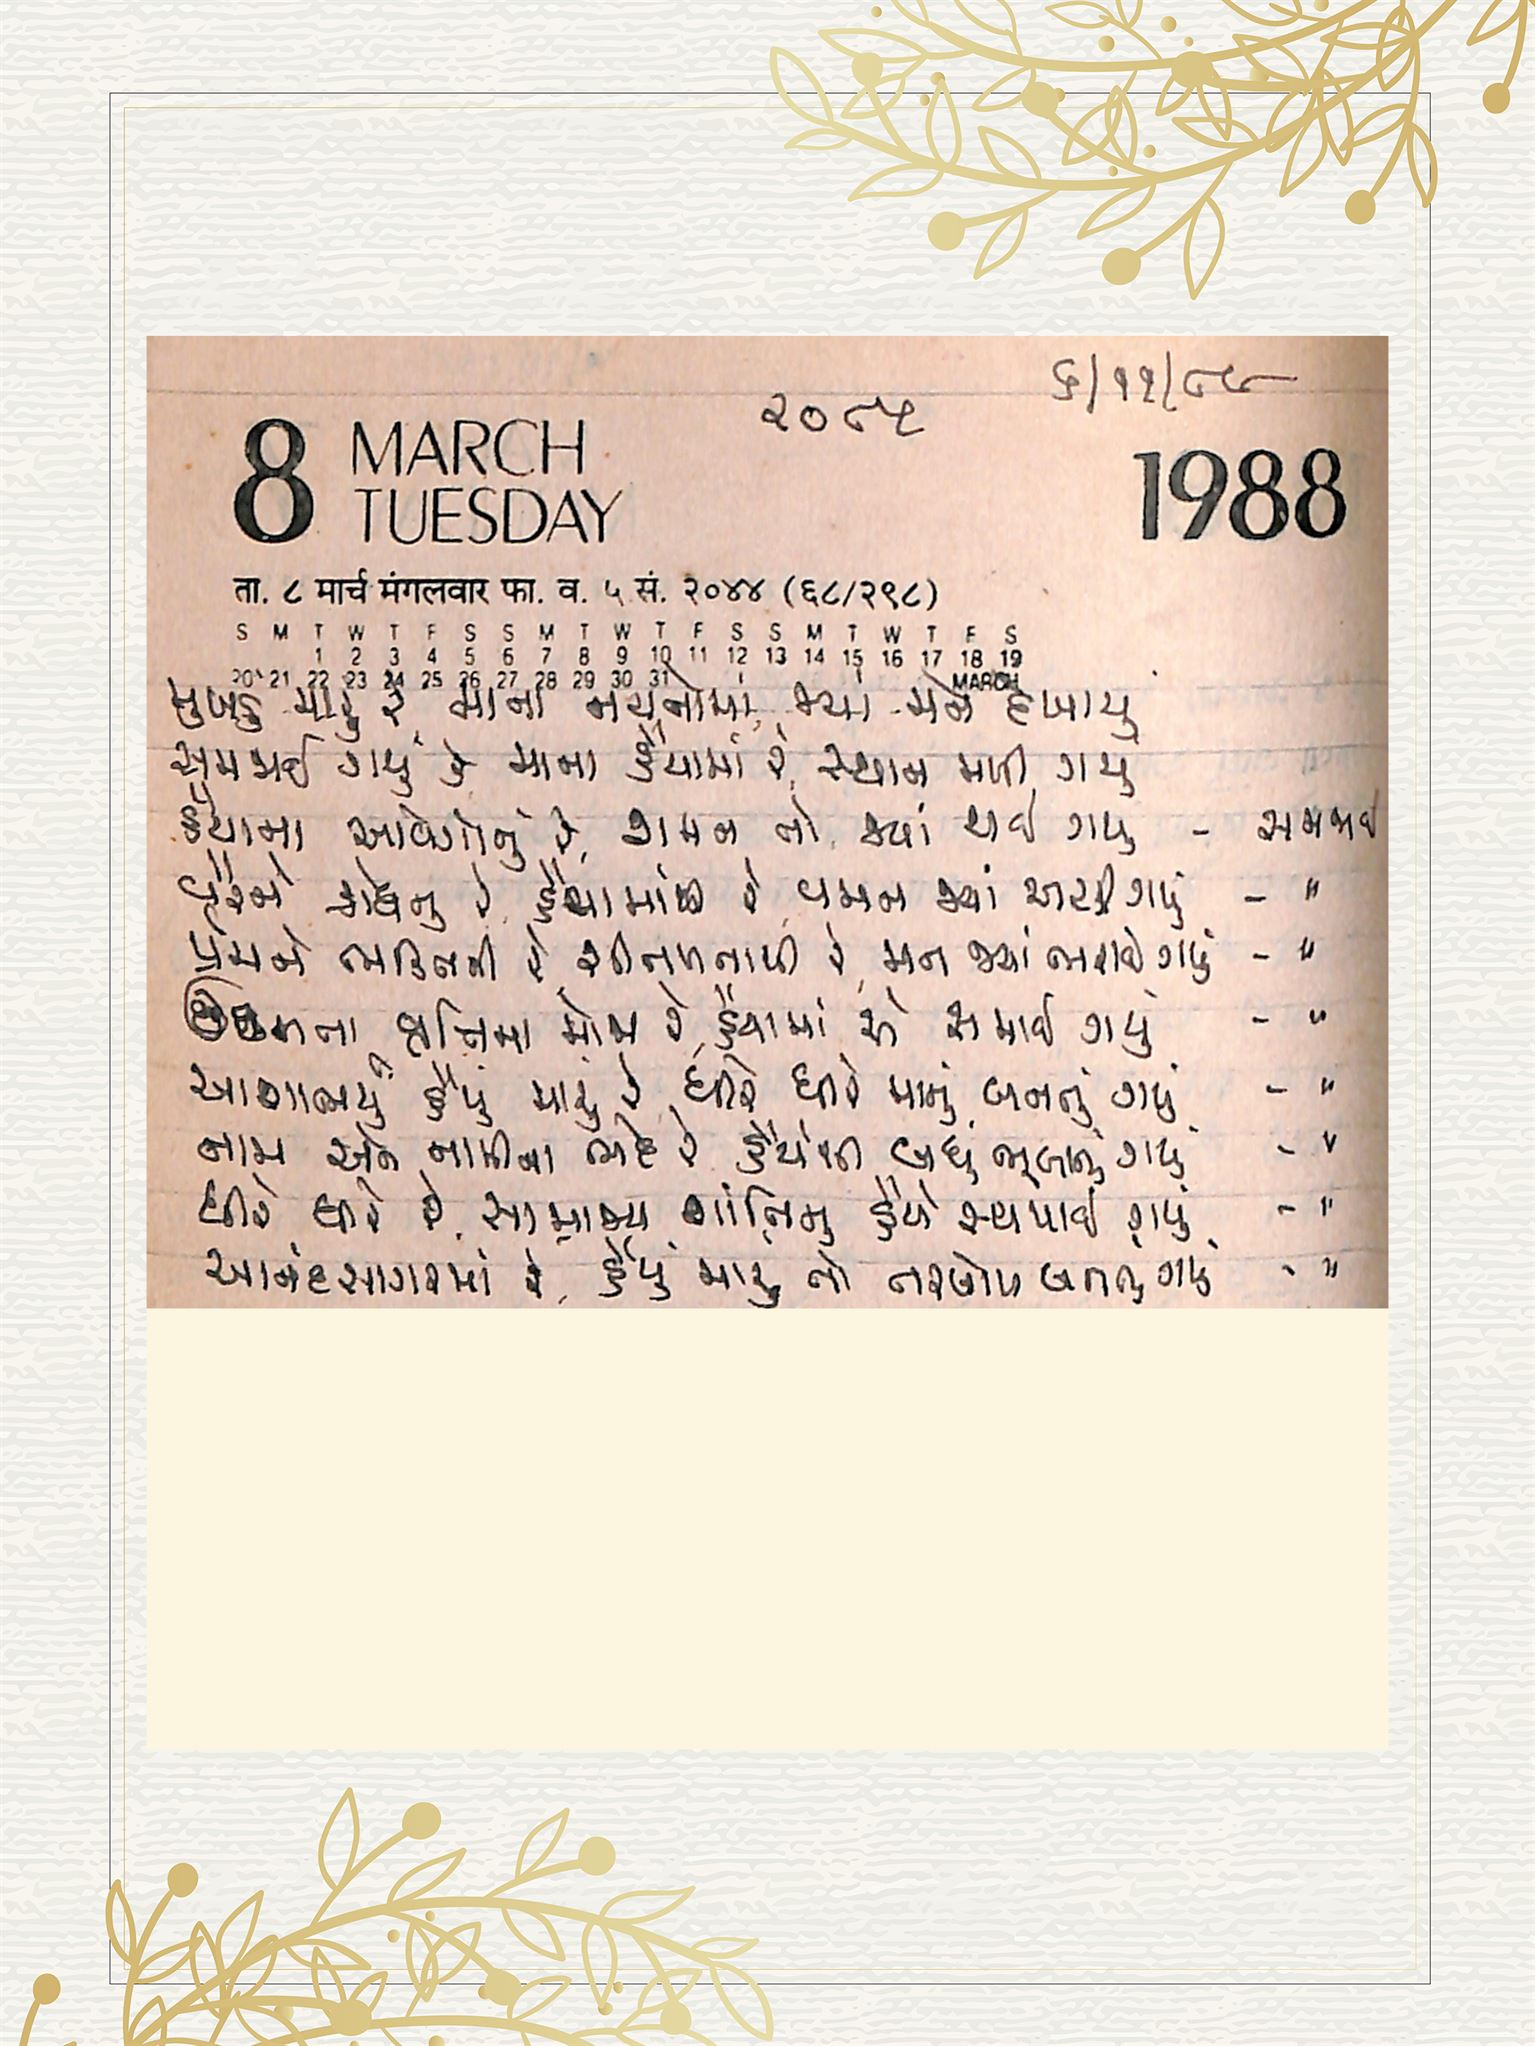 ૬/૧૧/૮૯
૨૦૮૫
8 MARCH
TUESDAY
1988
ता. ८ मार्च मंगलवार फा. व. ५ सं. २०४४ (६८/२९८)
S M T W T F S S M T W T F S S M T W T F S
1 2 3 4 5 6 7 8 9 10 11 12 13 14 15 16 17 18 19
20 21 22 23 24 25 26 27 28 29 30 31 MARCH
મુખડું મારું રે, માના નયનોમાં, જ્યાં મને દેખાયું
સમજાઈ ગયું કે માના હૈયામાં રે, સ્થાન મળી ગયું
હૈયાના આવેગોનું રે, શમન તો જ્યાં થઈ ગયું - સમજાઈ
વૈરને ક્રોધનું રે, હૈયામાંથી રે, વમન જ્યાં અટકી ગયું - "
પ્રેમને ભક્તિની રે, શીતળતાથી રે, મન જ્યાં ભરાઈ ગયું - "
ના શક્તિમા રે, હૈયામાં એ સમાઈ ગયું - "
આશાભર્યું હૈયું મારું રે, ધીરે ધીરે માનું બનતું ગયું - "
નામ અને નામીના ભેદ રે, હૈયેથી બધું ભૂલાતું ગયું - "
ધીરે ધીરે રે, સામ્રાજ્ય શાંતિનુ હૈયે સ્થપાઈ ગયું - "
આનંદસાગરમાં રે, હૈયું મારું તો તરબોળ બનતું ગયું - "